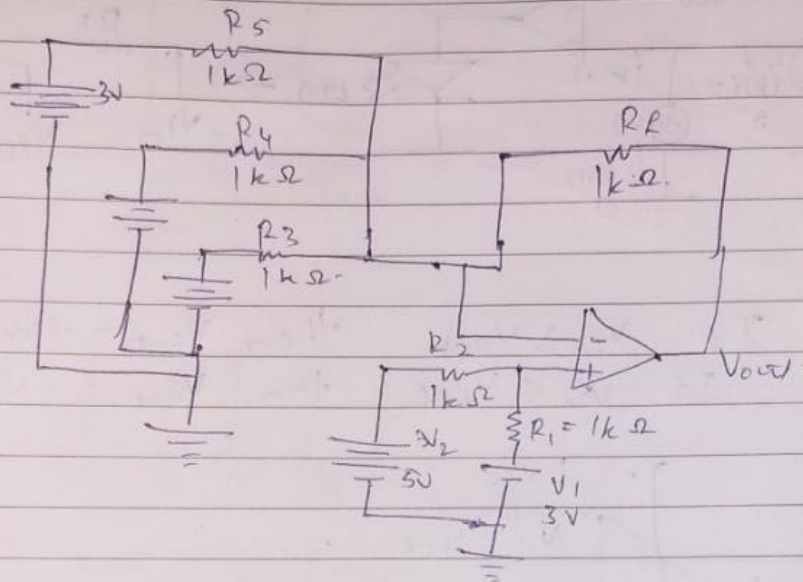 R5
1kΩ
3V
R4
1kΩ
RL
1kΩ.
R3
1kΩ.
R2
1kΩ
-
+
Vout
R1 = 1kΩ
V2
5V
V1
3V